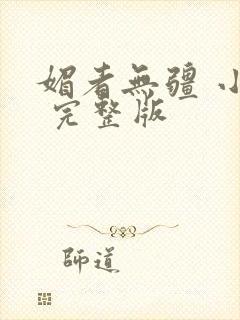 媚者無疆 小
完整版
師道